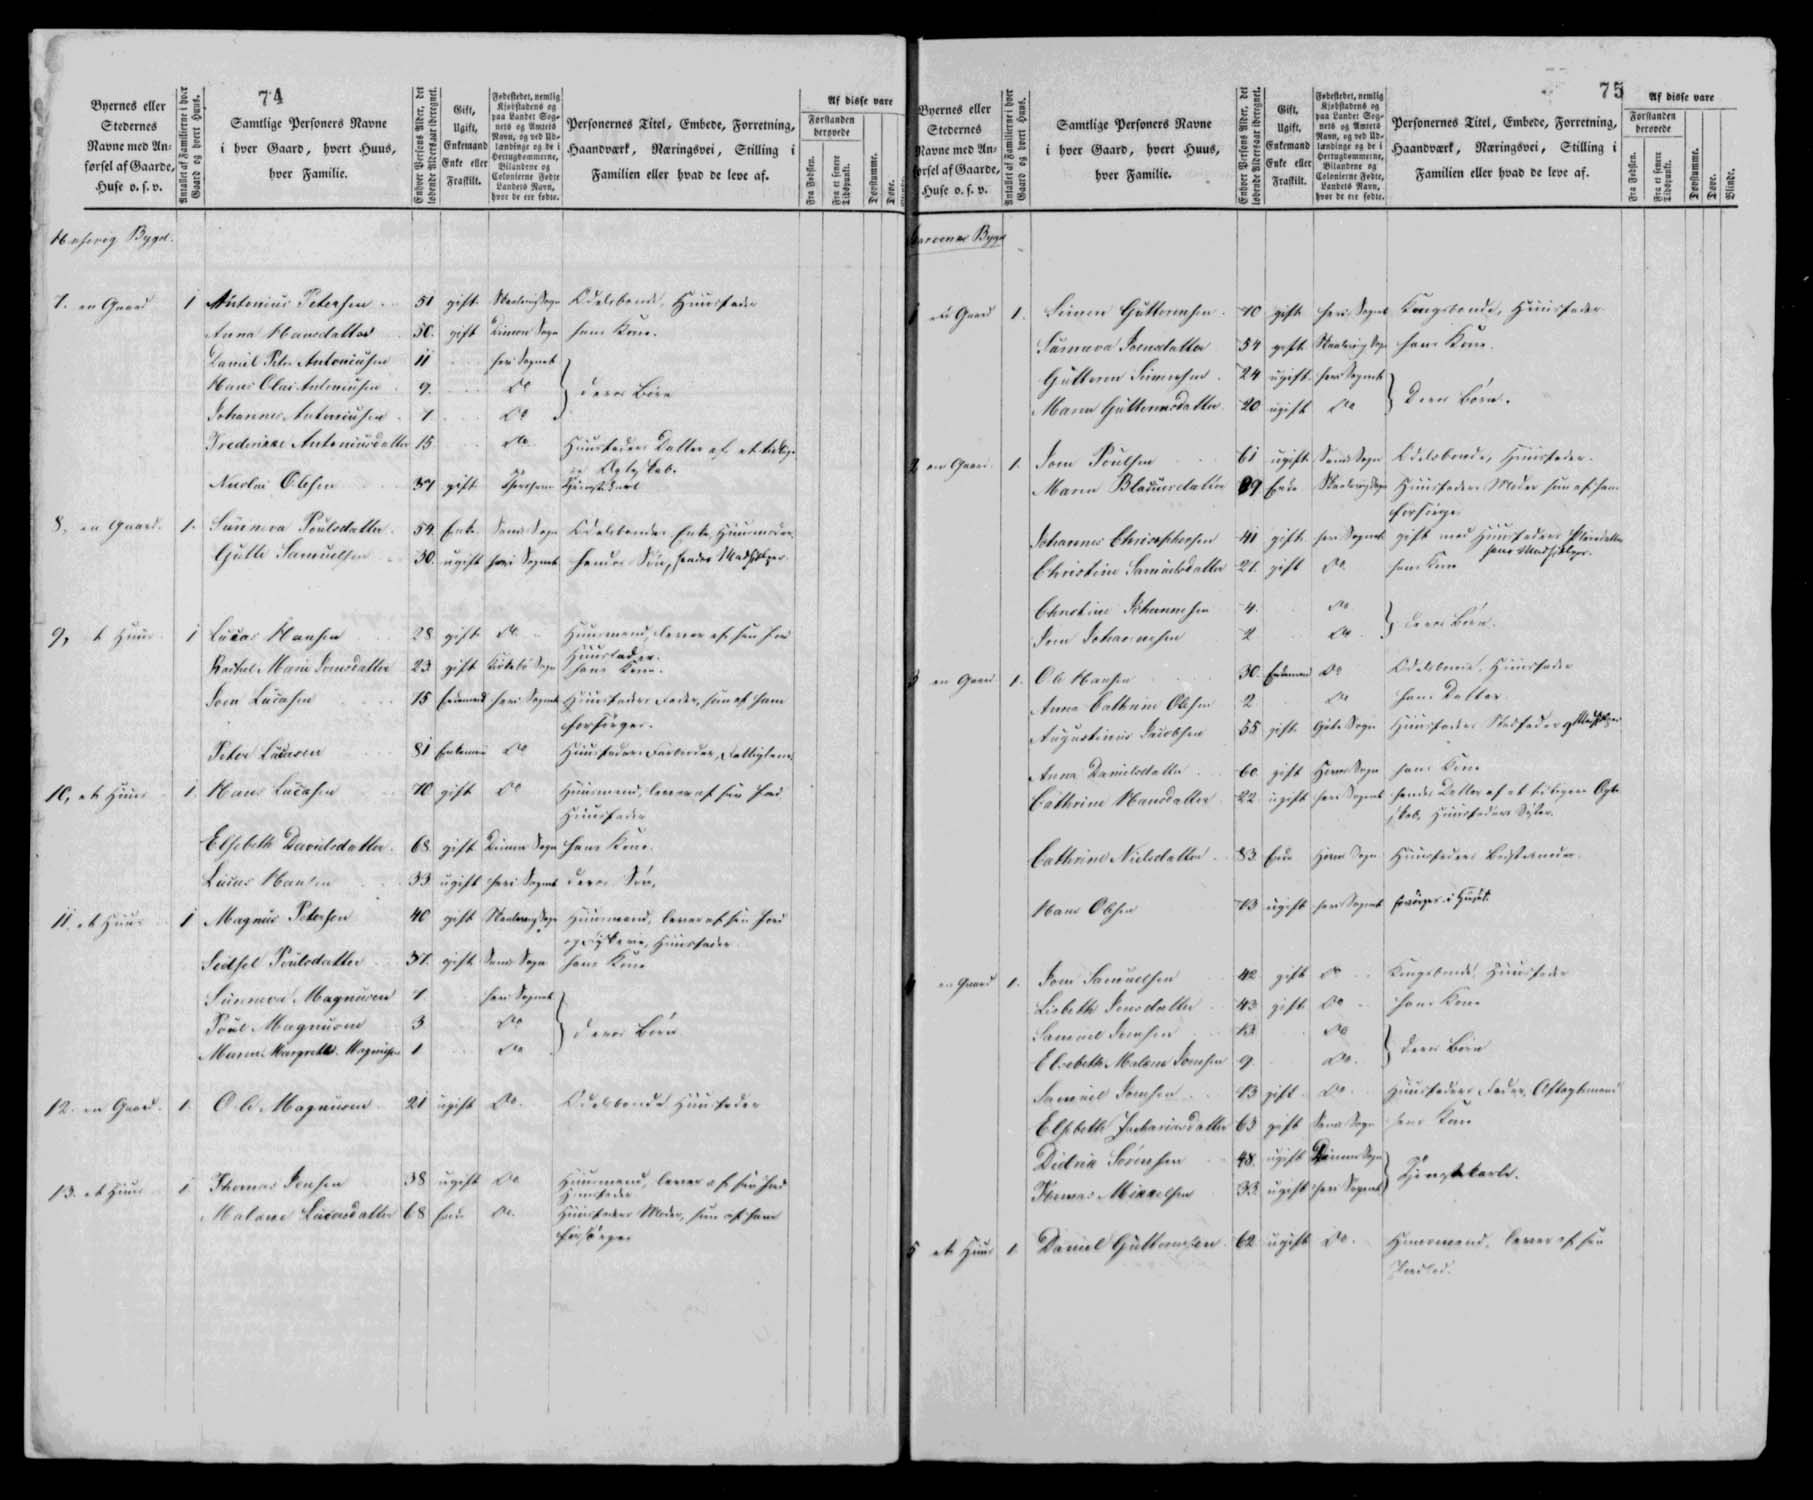 74
Byernes eller Stedernes Navne med Anførsel af Gaarde, Huse o. s. v.
Antallet af Familierne i hver Gaard og hvert Huus.
Samtlige Personers Navne i hver Gaard, hvert Huus, hver Familie.
Enhver Persons Alder, det løbende Aldersaar iberegnet.
Gift, Ugift, Enkemand Enke eller Fraskilt.
Fødestedet, nemlig Kjøbstadens og paa Landet Sognets og Amtets Navn, og ved Udlændinge og de i Hertugdømmerne, Bilandene og Colonierne Fødte Landets Navn, hvor de ere fødte.
Personernes Titel, Embede, Forretning, Haandværk, Næringsvei, Stilling i Familien eller hvad de leve af.
Af disse vare
Forstanden berøvede
Fra Fødselen.
Fra et senere Tidspunkt.
Døvstumme.
Døve.
Bygd.
7. en Gaard 1 Antonius Petersen 51 gift Odelsbonde, Huusfader
Anna Hansdatter 50. gift Sogn hans Kone.
Daniel Peter Antoniusen 11 her i Sognet
Hans Olai Antoniusen 9. Do deres Børn
Johannes Antoniusen 7 Do
Frederikke Antoniusdatter 15 Do Huusfaders Datter af et tidligere Ægteskab.
Nicolai Olsen 37 gift Tjenestekarl
8. en Gaard 1. Sunneva Poulsdatter 54. Enke Sands Sogn Odelsbondes Enke, Huusmoder
Gutte Samuelsen 30. ugift her i Sognet hendes Søn, hendes Medhjelper
9, et Huus 1 Lucas Hansen 28 gift Do Huusmand, lever af sin Jord
Huusfader.
Rachel Marie Joensdatter 23 gift Sogn hans Kone.
Joen Lucasen 75 Enkemand her i Sognet Huusfaders Fader, som af ham
forsørges.
Peter Lucasen 81 Enkemand Do Huusfaders Farbroder, Fattiglem.
10, et Huus 1. Hans Lucasen 70 gift Do Huusmand, lever af sin Jord
Huusfader
Elsebeth Davidsdatter 68 gift Sogn hans Kone.
Lucas Hansen 33 ugift her i Sognet deres Søn.
11. et Huus 1 Magnus Petersen 40 gift Huusmand, lever af sin Jord
og Fiskerie, Huusfader
Sidsel Poulsdatter 37. gift Sands Sogn hans Kone
Sunneva Magnusen 7. her i Sognet
Poul Magnusen 3 Do deres Børn
Maren Margrethe Magnusen 1 Do
12. en Gaard. 1. Ole Magnusen 21 ugift Do. Odelsbonde Huusfader
13. et Huus 1 Thomas Jensen 38 ugift Do Huusmand, lever af sin Jord
Huusfader
Malene Lucasdatter 68 Enke Do. Huusfaders Moder, som af ham
forsørges
75
Byernes eller Stedernes Navne med Anførsel af Gaarde, Huse o. s. v.
Antallet af Familierne i hver Gaard og hvert Huus.
Samtlige Personers Navne i hver Gaard, hvert Huus, hver Familie.
Enhver Persons Alder, det løbende Aldersaar iberegnet.
Gift, Ugift, Enkemand Enke eller Fraskilt.
Fødestedet, nemlig Kjøbstadens og paa Landet Sognets og Amtets Navn, og ved Udlændinge og de i Hertugdømmerne, Bilandene og Colonierne Fødte, Landets Navn, hvor de ere fødte.
Personernes Titel, Embede, Forretning, Haandværk, Næringsvei, Stilling i Familien eller hvad de leve af.
Af disse vare
Forstanden berøvede
Fra Fødselen.
Fra et senere Tidspunkt.
Døvstumme.
Døve.
Blinde.
Bygd
1 en Gaard 1. Simon Guttormsen 70 gift her i Sognet Kongsbonde, Huusfader
Sunneva Joensdatter 54 gift hans Kone.
Guttorm Simonsen 24 ugift her i Sognet
Maren Guttormsdatter 20 ugift Do Deres Børn.
2 en Gaard. 1. Joen Poulsen 61 ugift Sands Sogn Odelsbonde, Huusfader.
Maren 89 Enke Huusfaders Moder som af ham
forsørges
Johannes Christophersen 41 gift her i Sognet gift med Huusfaders Pleiedatter
hans Medhjelper.
Christine Samuelsdatter 21. gift Do hans Kone
Christine Johannesen 4. Do
Joen Johannesen 2 Do deres Børn.
3 en Gaard. 1. Ole Hansen 30. Enkemand Do Odelsbonde, Huusfader
Anna Cathrine Olsen 2 Do hans Datter.
Augustinus Jacobsen 55 gift Gøte Sogn Huusfaders Stedfader og Medhjelper
Anna Danielsdatter 60. gift Sogn hans Kone
Cathrine Hansdatter 22 ugift her i Sognet hendes Datter af et tidligere Ægteskab, Huusfaders Søster.
Cathrine Nielsdatter 83. Enke Sogn Huusfaders Bestemoder.
Hans Olsen 73 ugift her i Sognet forsørges i Huset.
4 en Gaard 1. Joen Samuelsen 42 gift Do Kongsbonde, Huusfader
Lisbeth Jensdatter 43 gift Do hans Kone
Samuel Joensen 13. Do
Elsebeth Malene Joensen 9. Do. deres Børn
Samuel Joensen 73 gift Do Huusfaders Fader, Aftægtsmand
Elsebeth Zachariasdatter 65 gift Sands Sogn hans Kone
Didrik Sørensen 48. ugift Sogn
Thomas Mikkelsen 33. ugift her i Sognet Tjenestekarle.
5 et Huus 1. Daniel Guttormsen 62 ugift Do. Huusmand, lever af sin
Jordlod.